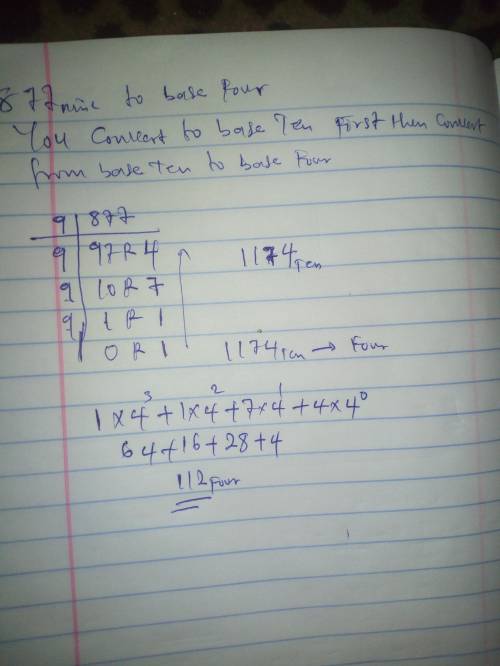 877nine to base Four
You Convert to base Ten First then Convert
from base Ten to base Four
9 | 877
9 | 97 R 4
9 | 10 R 7
9 | 1 R 1
0 R 1
1174Ten
1174Ten → Four
1 × 4³ + 1 × 4² + 7 × 4¹ + 4 × 4⁰
64 + 16 + 28 + 4
112Four